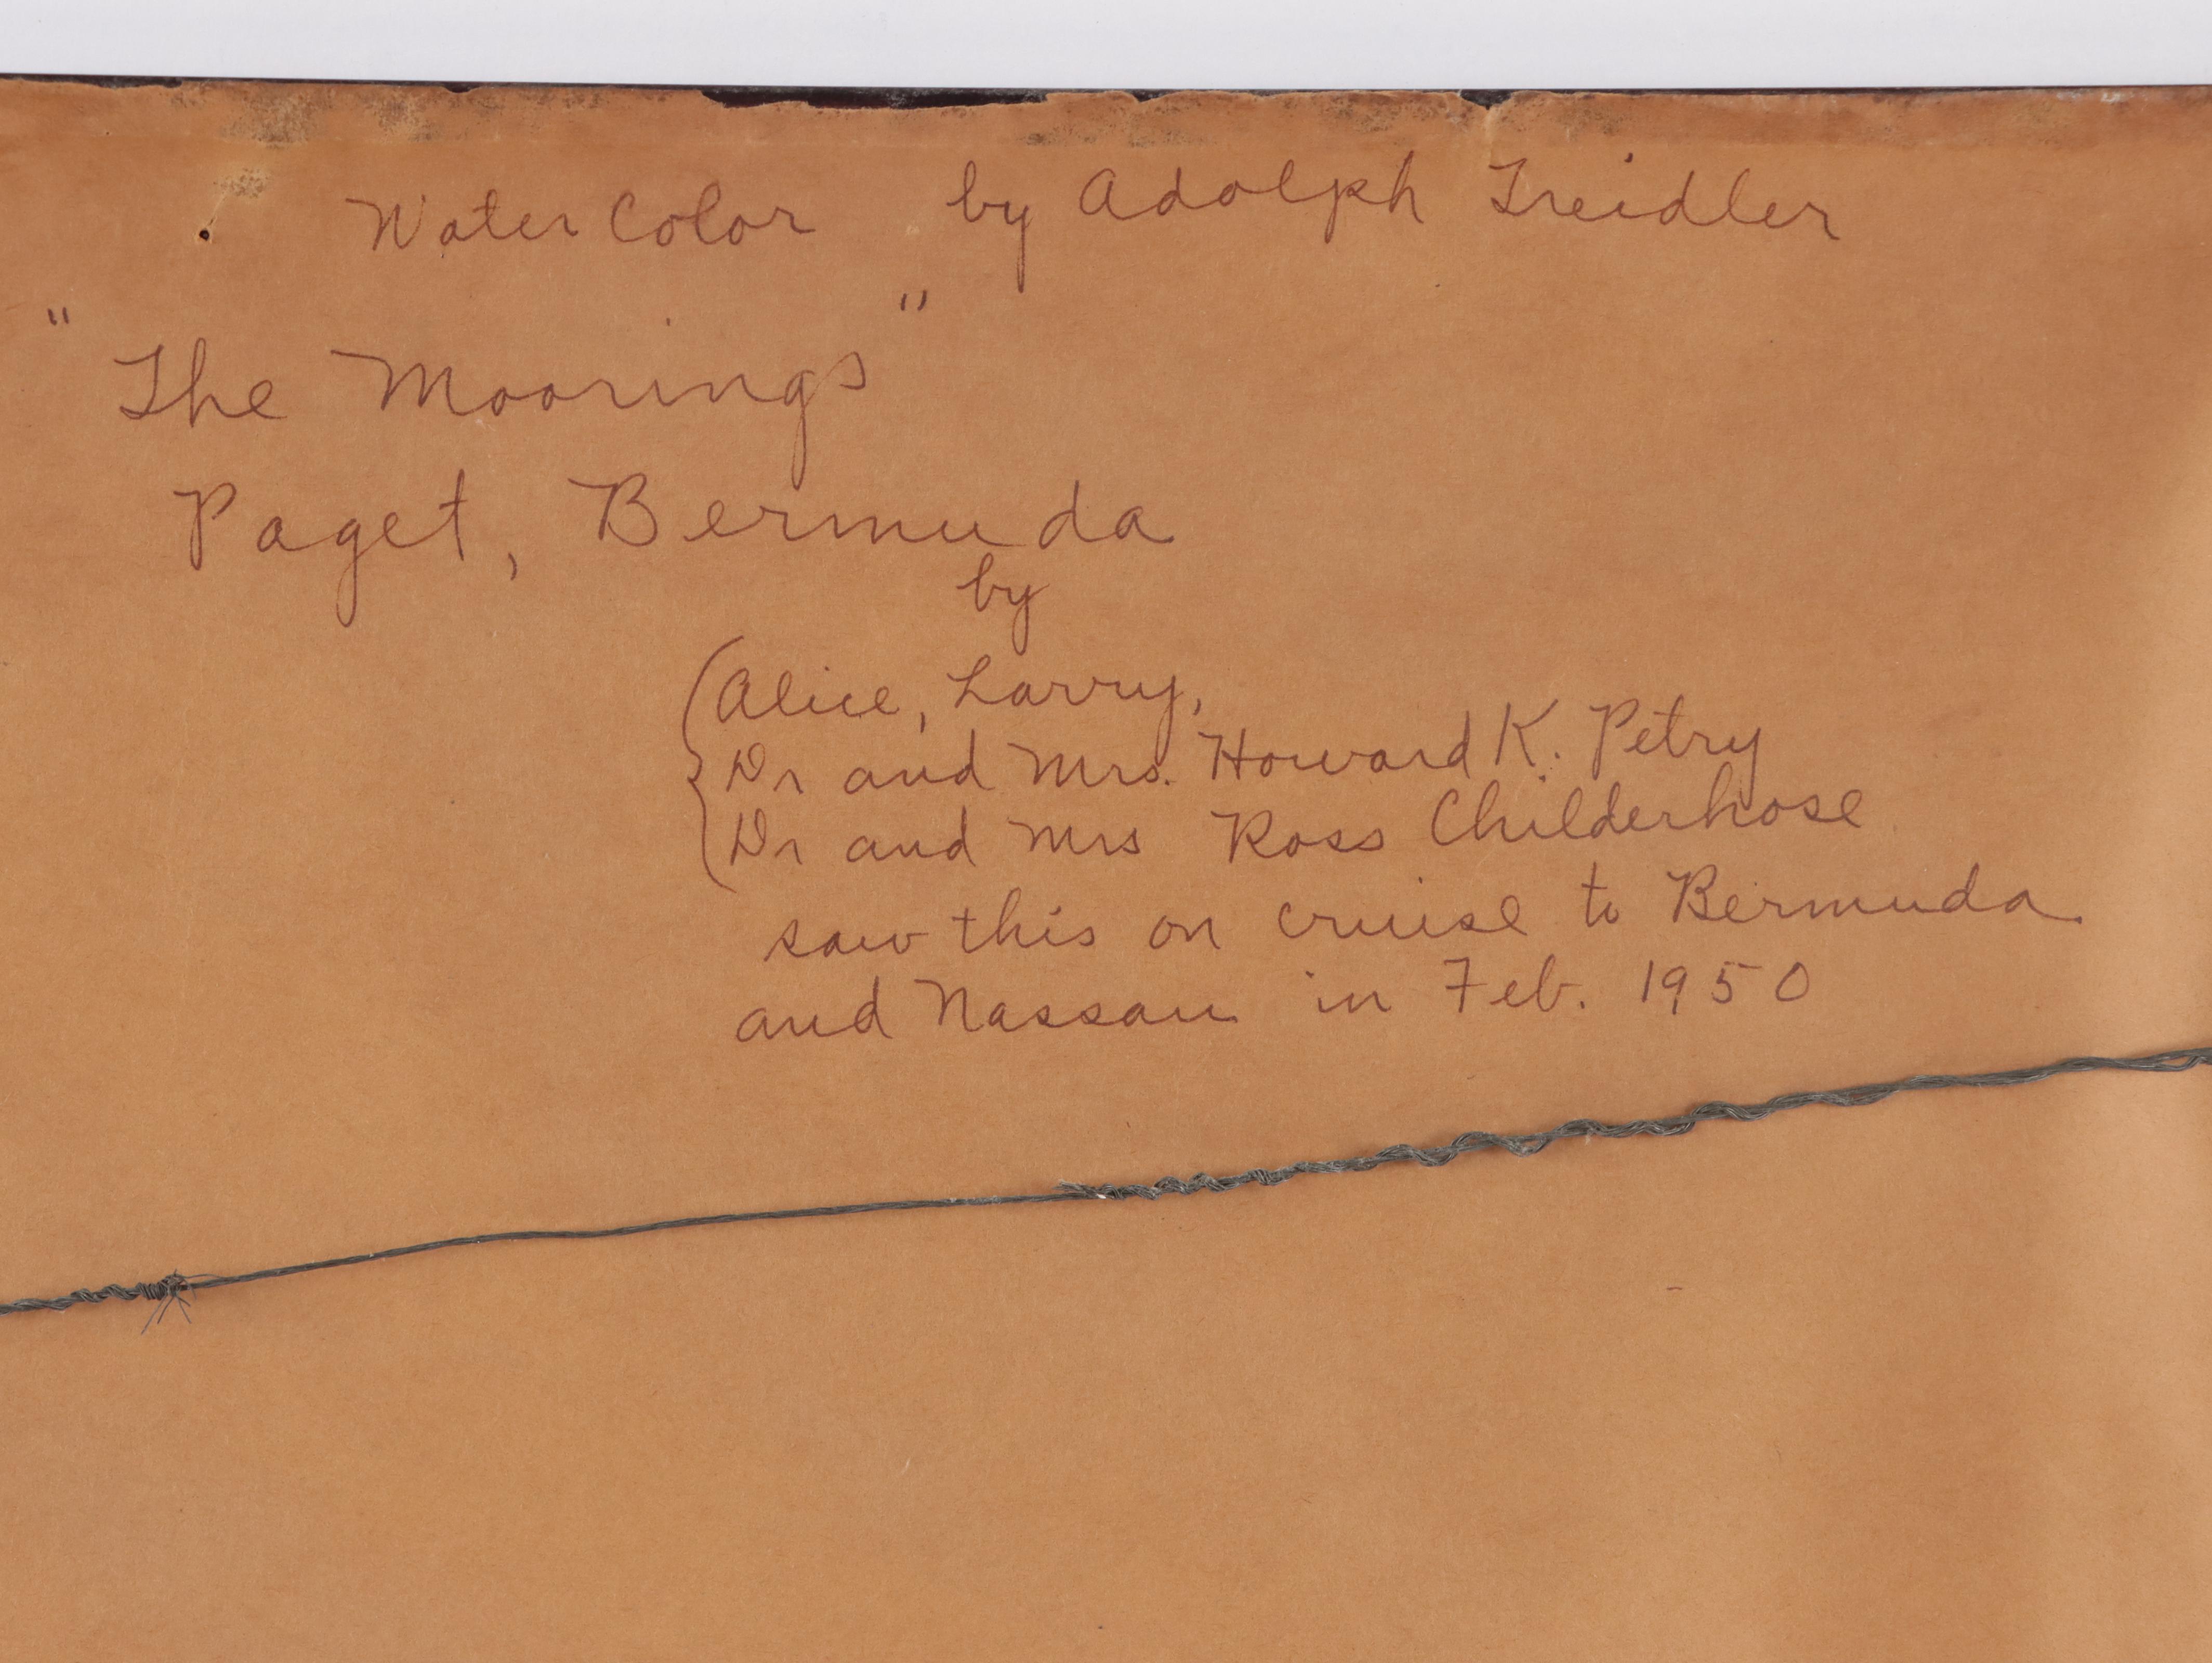 Water Color by Adolph Treidler
"The Moorings"
Paget, Bermuda
by
Alice, Larry,
Dr and Mrs. Howard K. Petry
Dr and Mrs Ross Childerhose
saw this on cruise to Bermuda
and Nassau in Feb. 1950